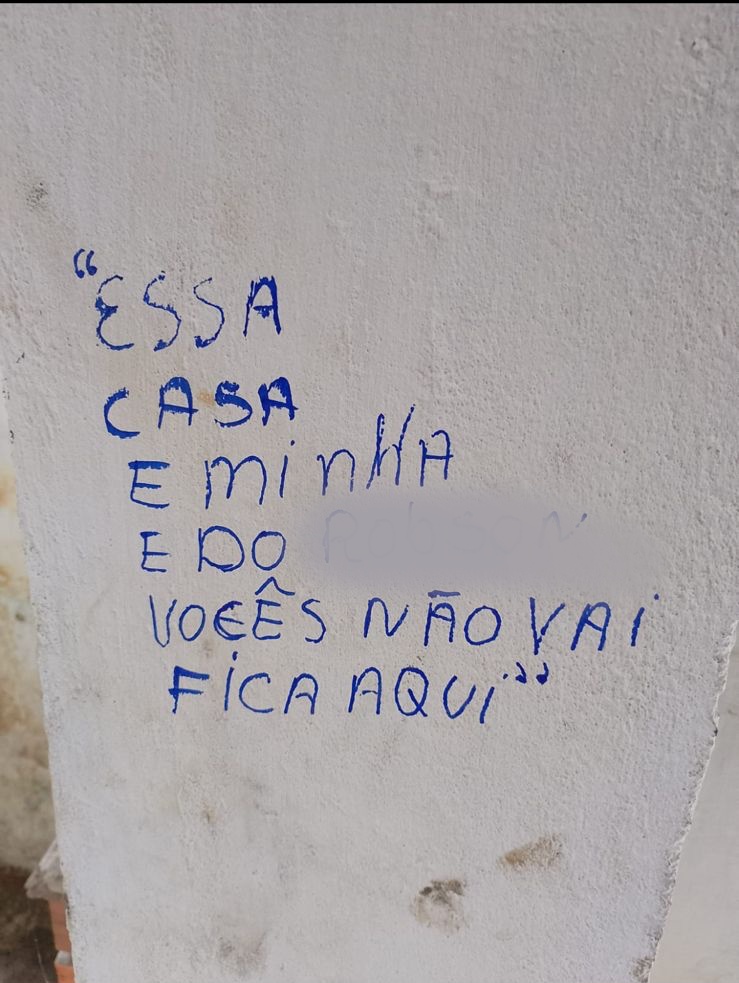 “ESSA
CASA
E minHA
E DO
VOCÊS NÃO VAi
FiCA AQUi”